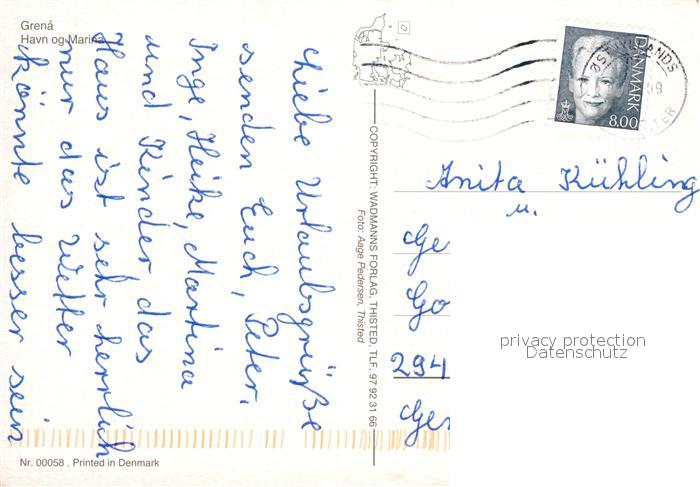 Grenå
Havn og Marina
Liebe Urlaubsgrüße
senden Euch, Peter.
Inge, Heike, Martina
und Kinder das
Haus ist sehr herrlich
nur das Wetter
könnte besser sein
COPYRIGHT: WADMANNS FORLAG, THISTED, TLF. 97 92 31 66
Foto: Aage Pedersen, Thisted
DANMARK
8.00
Anita Kühling
u.
Ge
Go
294
Ger
privacy protection
Datenschutz
Nr. 00058 . Printed in Denmark